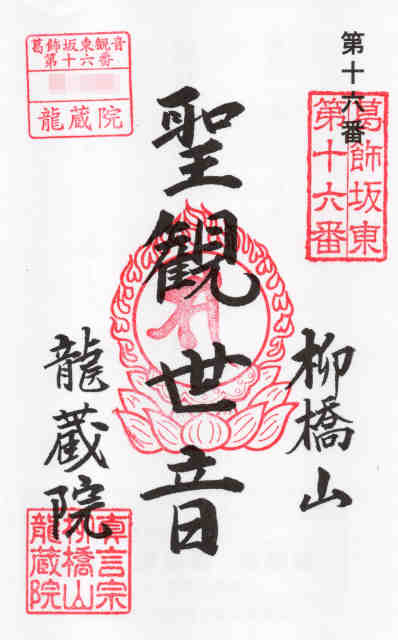 第十六番
葛飾坂東
第十六番
柳橋山
聖観世音
龍蔵院
葛飾坂東観音
第十六番
龍蔵院
真言宗
柳橋山
龍蔵院